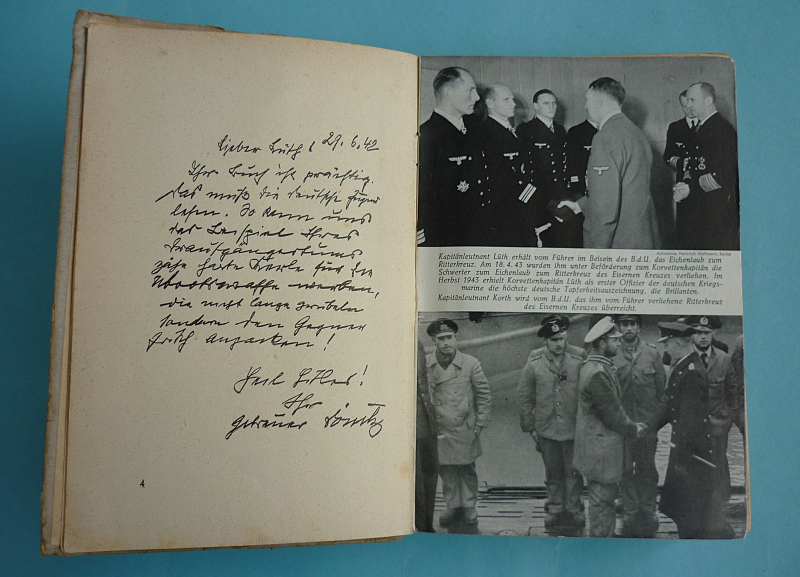 Lieber Lüth! 29.6.42
Ihr Buch ist prächtig.
Das muß die deutsche Jugend
lesen. So kann uns
das Beispiel Ihres
Draufgängertums
zähe harte Kerle für die
Ubootswaffe werben,
die nicht lange grübeln
sondern den Gegner
frisch anpacken!
Heil Hitler!
Ihr
getreuer Dönitz
4
Aufnahme: Heinrich Hoffmann, Berlin
Kapitänleutnant Lüth erhält vom Führer im Beisein des B.d.U. das Eichenlaub zum
Ritterkreuz. Am 18. 4. 43 wurden ihm unter Beförderung zum Korvettenkapitän die
Schwerter zum Eichenlaub zum Ritterkreuz des Eisernen Kreuzes verliehen. Im
Herbst 1943 erhielt Korvettenkapitän Lüth als erster Offizier der deutschen Kriegs-
marine die höchste deutsche Tapferkeitsauszeichnung, die Brillanten.
Kapitänleutnant Korth wird vom B.d.U. das ihm vom Führer verliehene Ritterkreuz
des Eisernen Kreuzes überreicht.